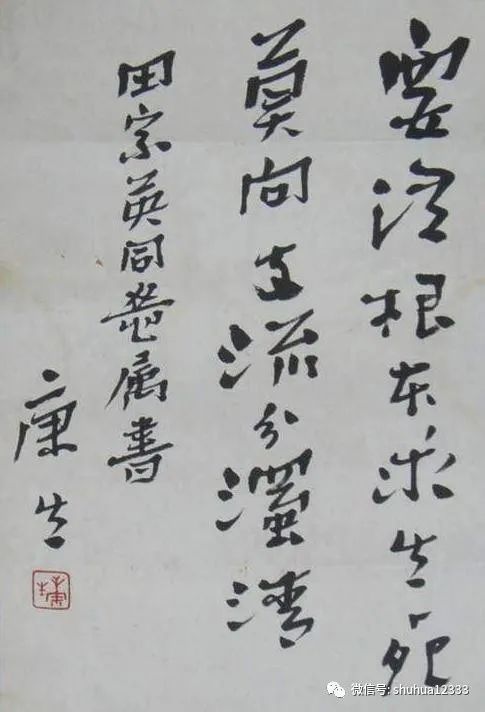 要從根本求生死
莫向支流分濁清
田宗英同志属書
康生
微信号: shuhua12333